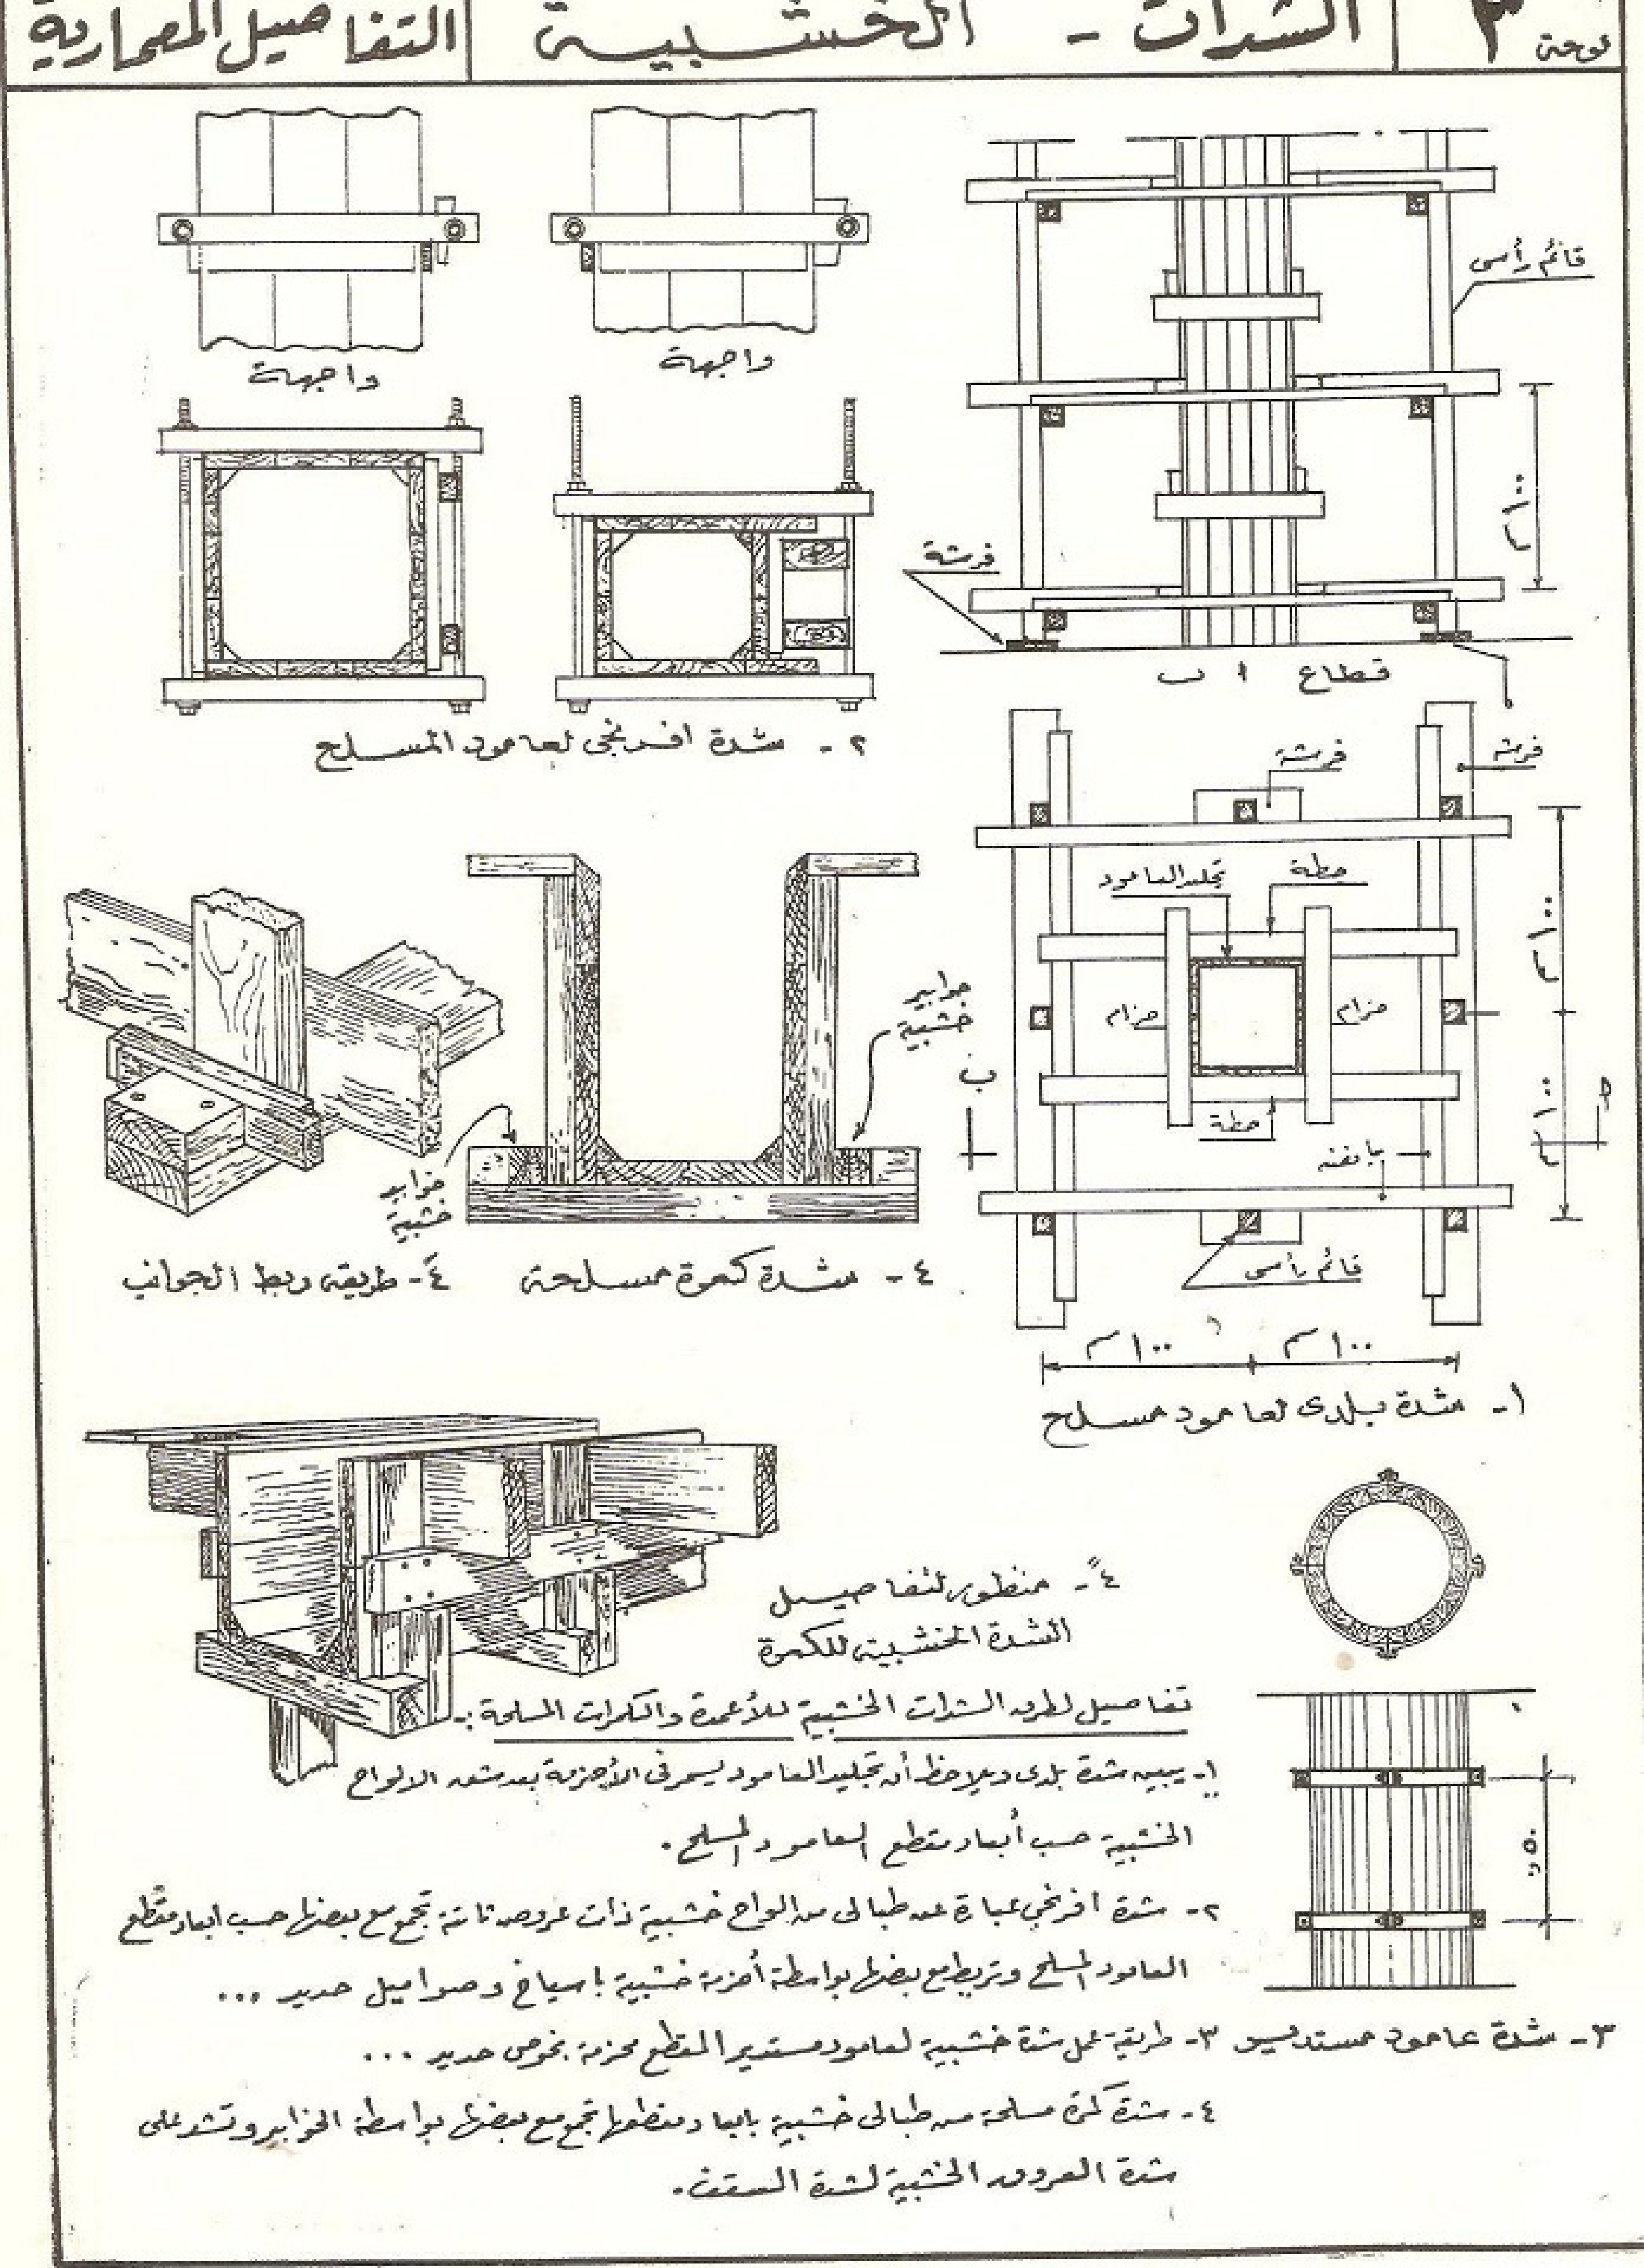 لوحة ٣
الشدات - الخشبية
التفاصيل المعمارية
واجهة
واجهة
٢- شدة افرنجى لعامود المسلح
قائم رأسى
١٠٠ سم
فرشة
قطاع ا ب
فرشة
فرشة
تجليد العامود
حطة
حزام
حزام
حطة
يانفنه
قائم رأسى
ب
١٠٠ سم
١٠٠ سم
١٠٠ سم
١٠٠ سم
١- شدة بلدى لعامود مسلح
خوابير
خشبية
خوابير
خشبية
٤- شدة كمرة مسلحة
٤َ- طريقة ربط الجوانب
٤ً- منظور لتفاصيل
الشدة الخشبية للكمرة
تفاصيل لطرق الشدات الخشبية للأعمدة والكمرات المسلحة :-
١- يبين شدة بلدى ويلاحظ أن تجليد العامود يسمر فى الأحزمة بعد شق الالواح
الخشبية حسب أبعاد مقطع العامود المسلح .
٢- شدة افرنجى عبارة عن طبالى من الواح خشبية ذات عروض ثابتة تجمع مع بعضها حسب ابعاد مقطع
العامود المسلح وتربط مع بعضها بواسطة أحزمة خشبية باسياخ وصواميل حديد ...
٥٠
٣- شدة عامود مستدير
٣- طريقة عمل شدة خشبية لعامود مستدير المقطع محزمة بخوص حديد ...
٤- شدة كمرة مسلحة من طبالى خشبية بابعاد مقطعها تجمع مع بعضها بواسطة الخوابير وتشد على
شدة العروق الخشبية لشدة السقف .